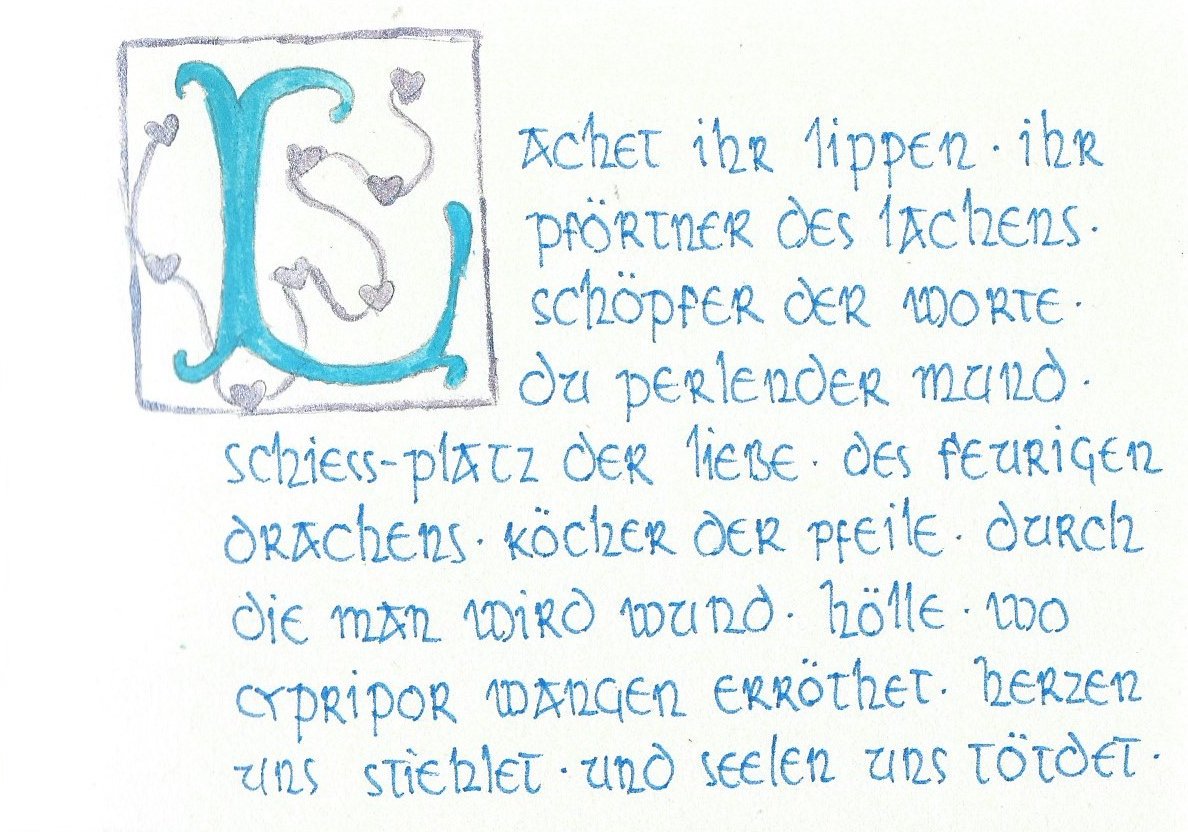 Lachet ihr lippen · ihr
pförtner des lachens ·
schöpfer der worte ·
du perlender mund ·
schiess-platz der liebe · des feurigen
drachens · köcher der pfeile · durch
die man wird wund · hölle · wo
cypripor wangen erröthet · herzen
uns stiehlet · und seelen uns tötdet ·